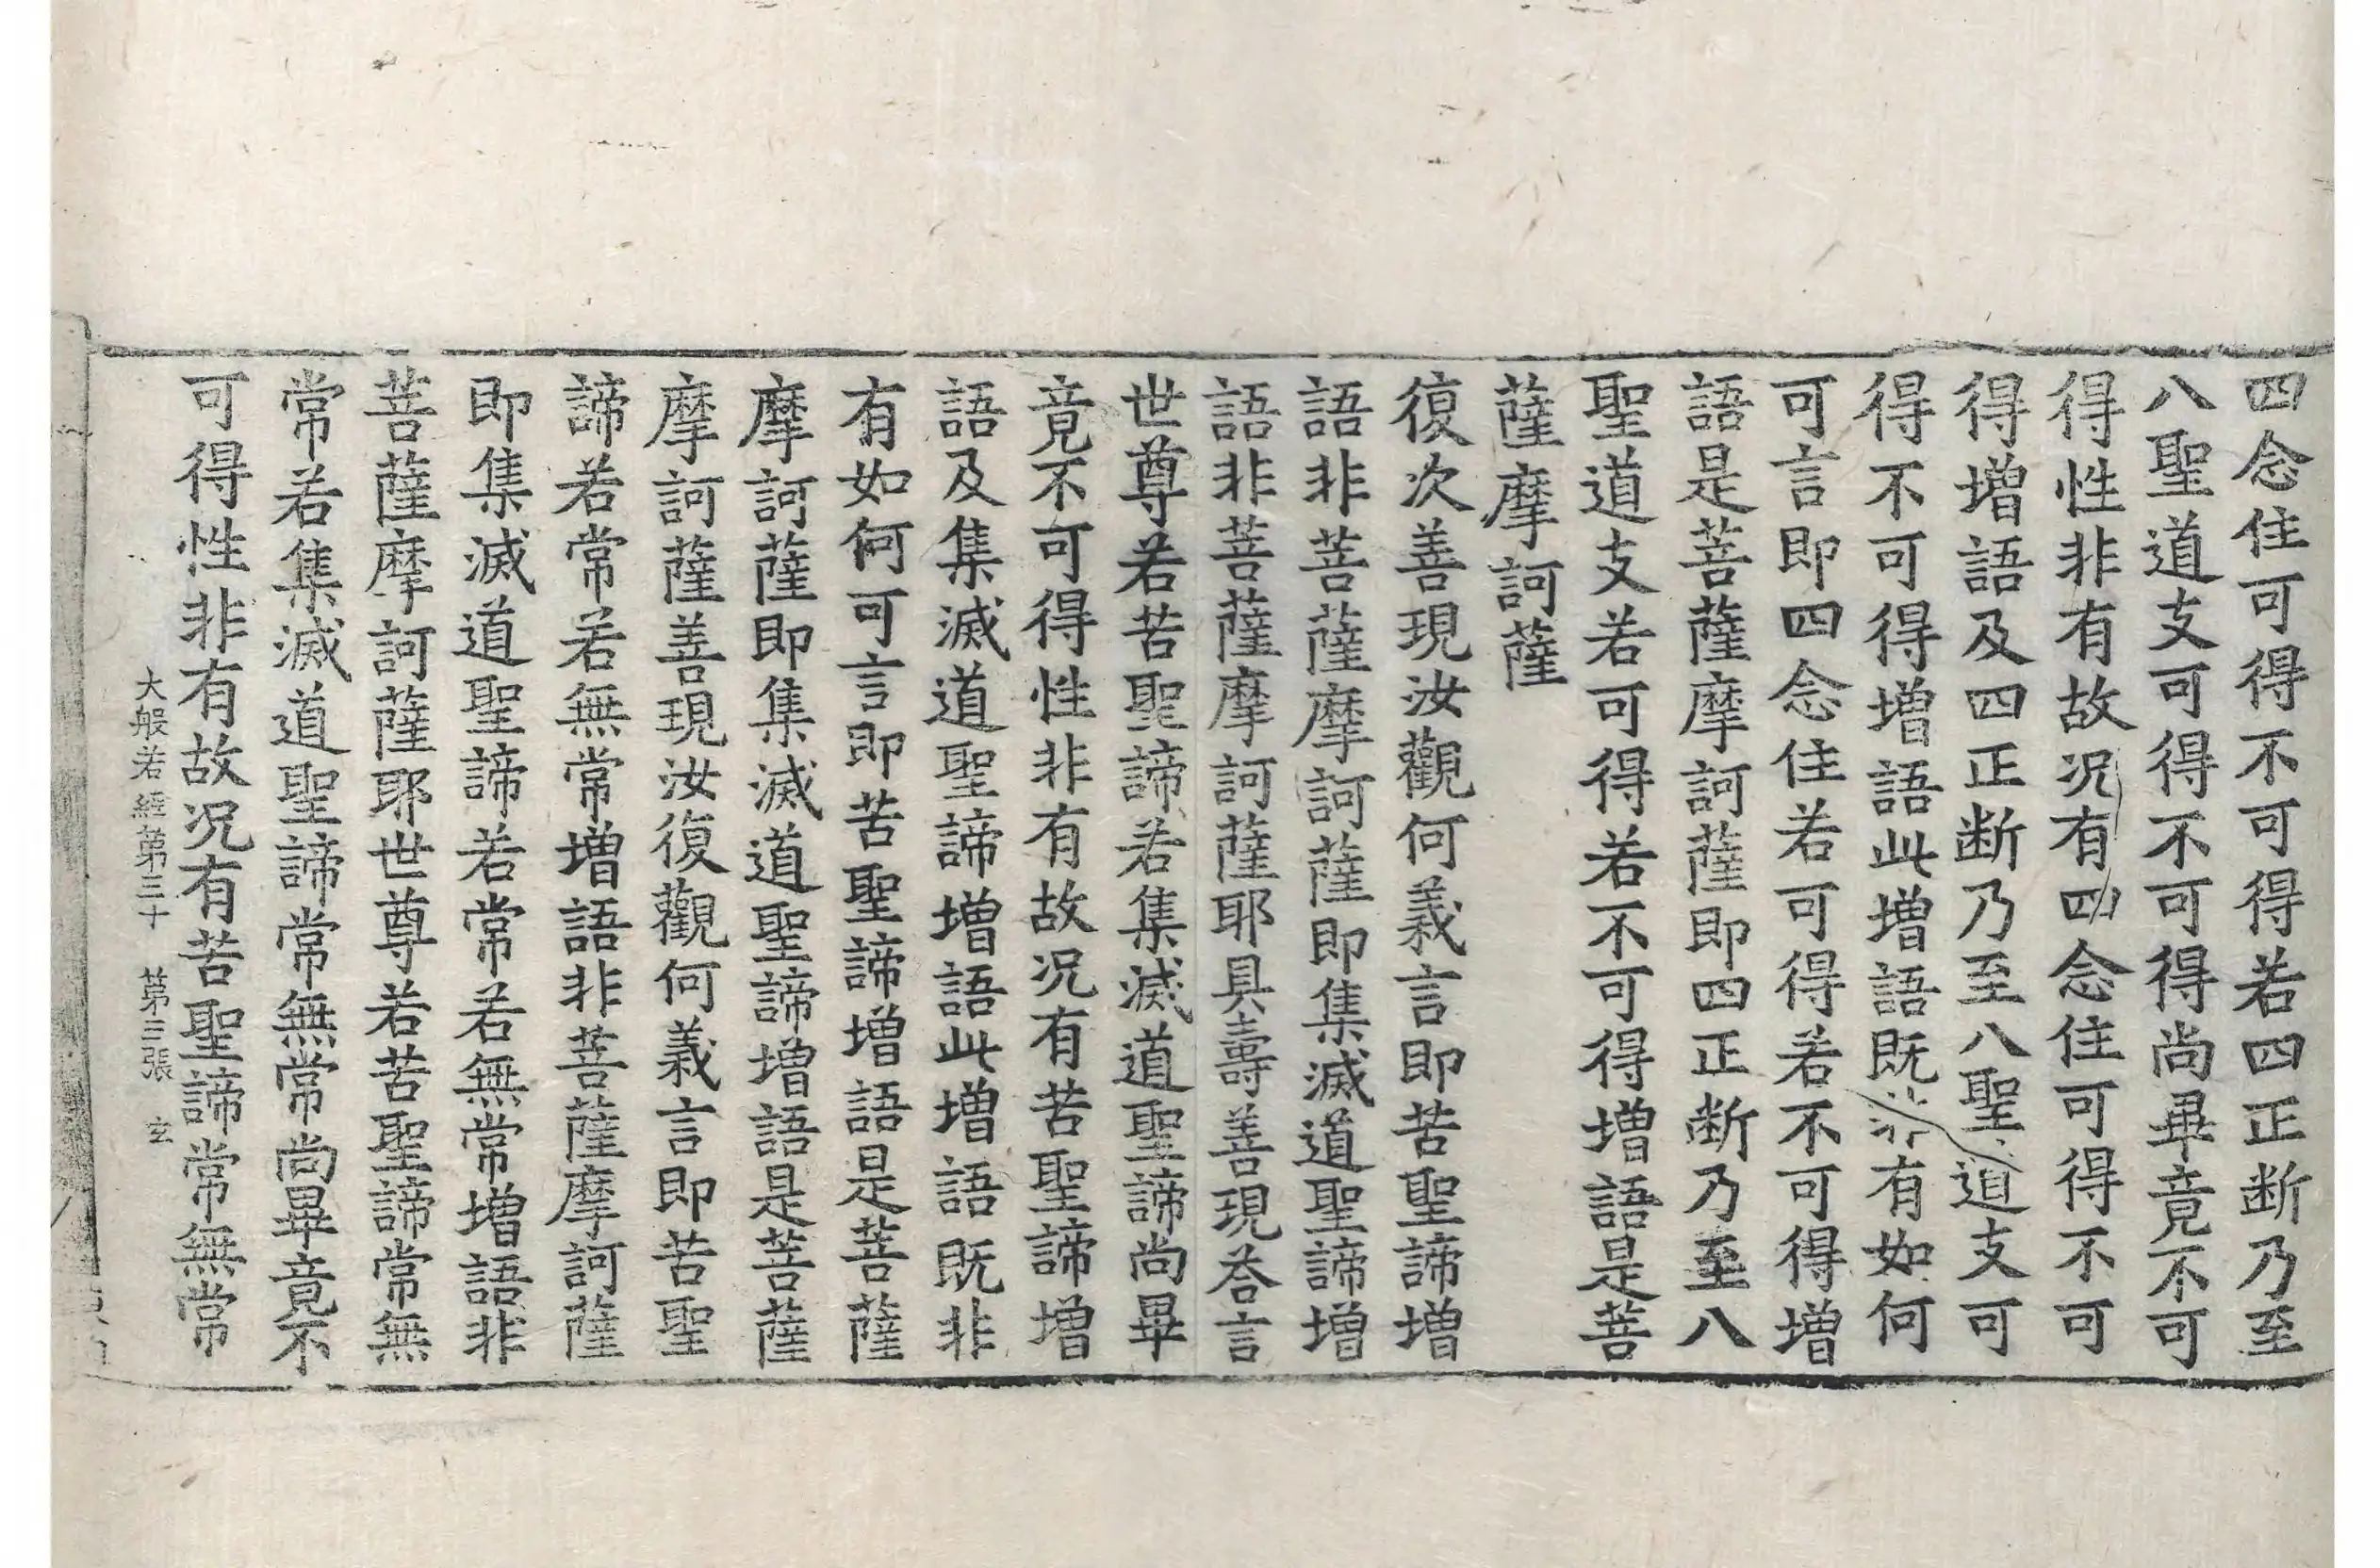 四念住可得不可得若四正断乃至
八聖道支可得不可得尚畢竟不可
得性非有故况有四念住可得不可
得增語及四正断乃至八聖道支可
得不可得增語此增語既非有如何
可言即四念住若可得若不可得增
語是菩薩摩訶薩即四正断乃至八
聖道支若可得若不可得增語是菩
薩摩訶薩
復次善現汝觀何義言即苦聖諦增
語非菩薩摩訶薩即集滅道聖諦增
語非菩薩摩訶薩耶具壽善現荅言
世尊若苦聖諦若集滅道聖諦尚畢
竟不可得性非有故况有苦聖諦增
語及集滅道聖諦增語此增語既非
有如何可言即苦聖諦增語是菩薩
摩訶薩即集滅道聖諦增語是菩薩
摩訶薩善現汝復觀何義言即苦聖
諦若常若無常增語非菩薩摩訶薩
即集滅道聖諦若常若無常增語非
菩薩摩訶薩耶世尊若苦聖諦常無
常若集滅道聖諦常無常尚畢竟不
可得性非有故况有苦聖諦常無常
大般若經第三十 第三張 玄